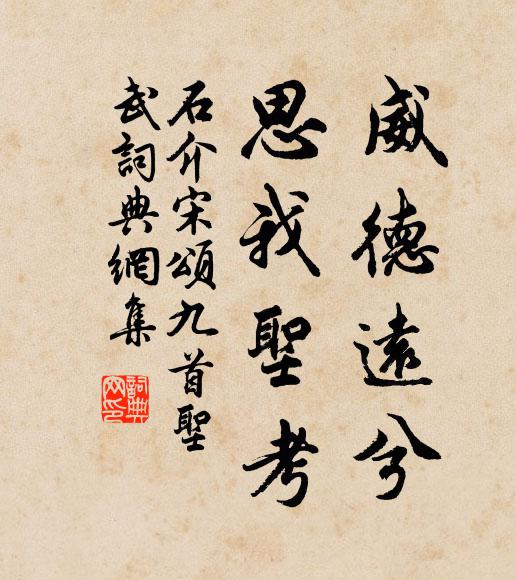 威德遠兮
思我聖考
石介宋頌九首聖
武詞典網集
詞典网印